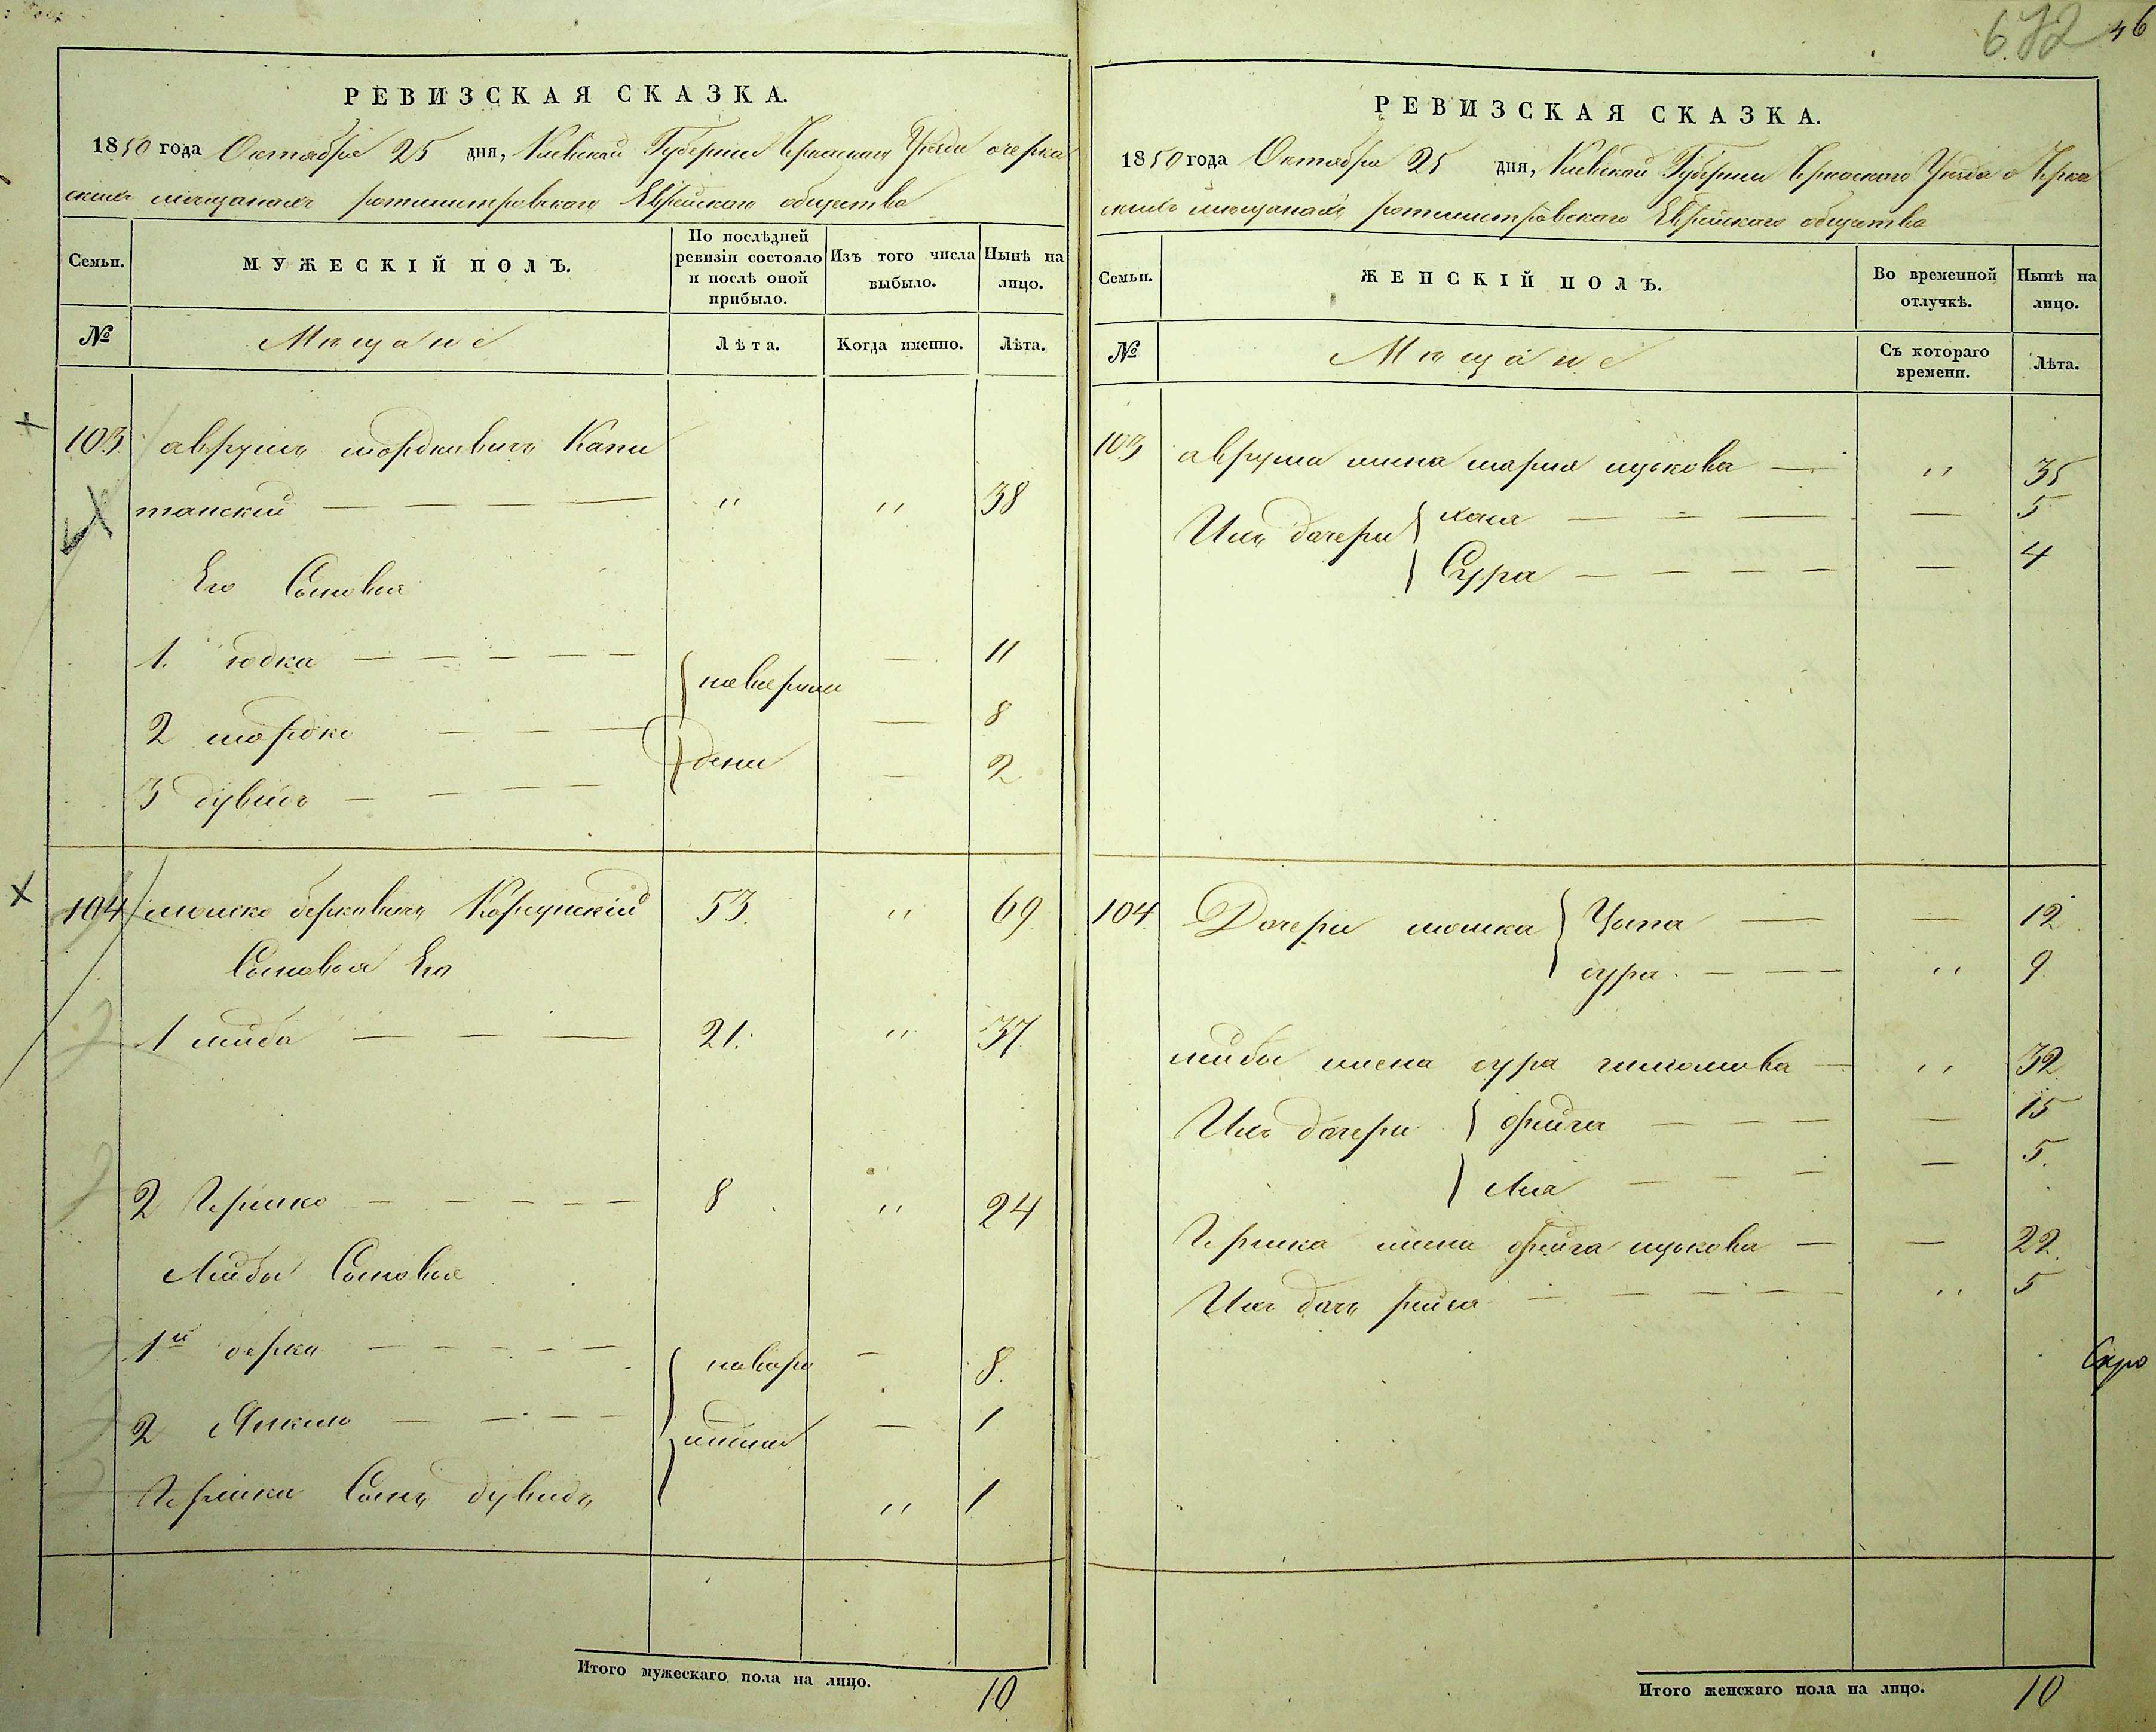 672 46
РЕВИЗСКАЯ СКАЗКА.
1850 года Октября 25 дня, Киевской Губернии Черкаскаго Уезда о черка
скихъ мещанахъ ротмистровскаго Еврейскаго общества
Семьи.
МУЖЕСКІЙ ПОЛЪ.
По послѣдней ревизіи состояло и послѣ оной прибыло.
Изъ того числа выбыло.
Нынѣ на лицо.
№
Мещане
Лѣта.
Когда именно.
Лѣта.
103 аврумъ мордковичъ Капи
танский — — — — " " 38
Его Сыновья
1. юдка — — — — — — 11
2 мордко — — — — 8
3 дувидъ — — — — — 2
104 мошко берковичъ Корсунский 53. " 69
Сыновья Его
1 лейба — — — 21. " 37
2 Гершко — — — — — 8 " 24
Лейбы Сыновья
1й берко — — — — — — 8.
2 Янкель — — — — — 1
Гершка Сынъ дувидъ " 1
Итого мужескаго пола на лицо. 10
РЕВИЗСКАЯ СКАЗКА.
1850 года Октября 25 дня, Киевской Губернии Черкаскаго Уезда о Черка
скихъ мещанахъ ротмистровскаго Еврейскаго общества
Семьи.
ЖЕНСКІЙ ПОЛЪ.
Во временной отлучкѣ.
Нынѣ на лицо.
№
Мещане
Съ котораго времени.
Лѣта.
103 аврума жена марья ицькова — " 35
Ихъ дочери хая — — — — 5
Сура — — — — — 4
104 Дочери мошка Ципа — — 12
сура — — " 9
лейбы жена сура — " 32
Ихъ дочери фейга — — — — 15
Лея — — — — 5.
Гершка жена фейга ицькова — — 22
Ихъ дочь рейза — — — — — " 5
Скро
Итого женскаго пола на лицо. 10